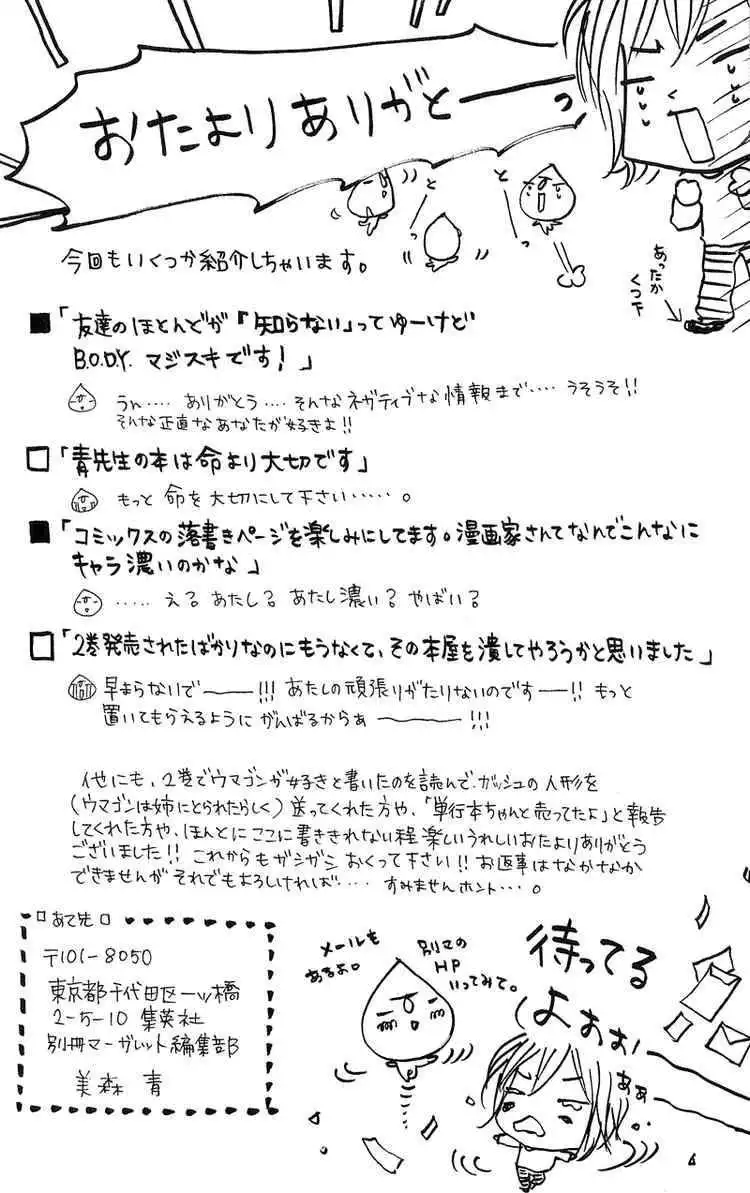 おたよりありがとーーっ
と
っ
と
っ
あったか
くつ下
今回もいくつか紹介しちゃいます。
■「友達のほとんどが『知らない」ってゆーけど
B.O.D.Y. マジスキです！」
うん‥‥ ありがとう‥‥そんなネガティブな情報まで‥‥うそうそ!!
そんな正直なあなたが好きよ!!
□「青先生の本は命より大切です」
もっと 命を大切にして下さい‥‥‥。
■「コミックスの落書きページを楽しみにしてます。漫画家さんてなんでこんなに
キャラ濃いのかな」
‥‥‥え？ あたし？ あたし濃い？ やばい？
□「2巻発売されたばかりなのにもうなくて、その本屋を潰してやろうかと思いました」
早まらないでーー!!! あたしの頑張りがたりないのですー!! もっと
置いてもらえるように がんばるからぁーー!!!
他にも、2巻でウマゴンが好きと書いたのを読んで、ガッシュの人形を
(ウマゴンは姉にとられたらしく)送ってくれた方や、「単行本ちゃんと売ってたよ」と報告
してくれた方や、ほんとにここに書ききれない程楽しいうれしいおたよりありがとう
ございました!! これからもガシガシ おくって下さい!! お返事はなかなか
できませんが それでもよろしければ‥‥ すみませんホント‥‥。
□あて先□
〒101-8050
東京都千代田区一ッ橋
2-5-10 集英社
別冊マーガレット編集部
美森 青
メールも
あるよ。
別マの
HP
いってみて。
待ってる
よぉぉぉ
ぉぁぁ